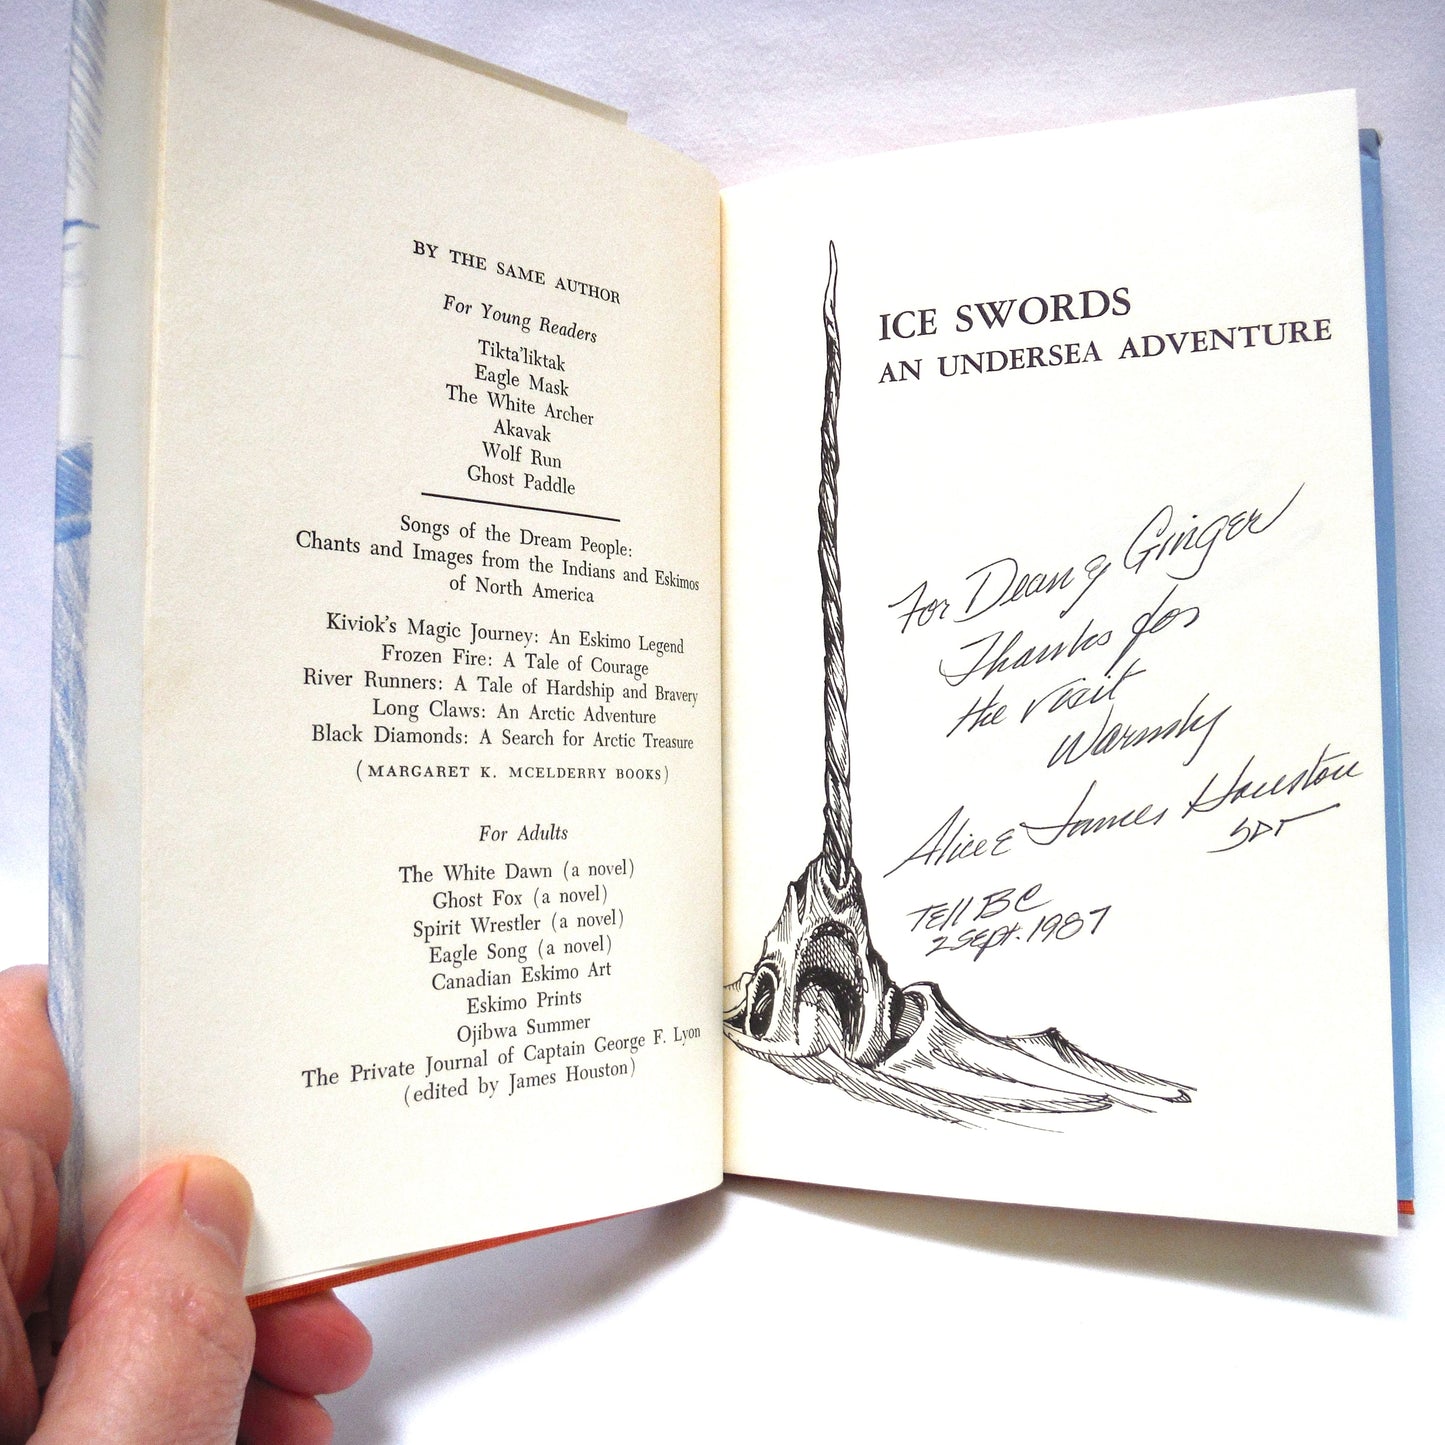 BY THE SAME AUTHOR
For Young Readers
Tikta'liktak
Eagle Mask
The White Archer
Akavak
Wolf Run
Ghost Paddle
Songs of the Dream People:
Chants and Images from the Indians and Eskimos
of North America
Kiviok's Magic Journey: An Eskimo Legend
Frozen Fire: A Tale of Courage
River Runners: A Tale of Hardship and Bravery
Long Claws: An Arctic Adventure
Black Diamonds: A Search for Arctic Treasure
(MARGARET K. MCELDERRY BOOKS)
For Adults
The White Dawn (a novel)
Ghost Fox (a novel)
Spirit Wrestler (a novel)
Eagle Song (a novel)
Canadian Eskimo Art
Eskimo Prints
Ojibwa Summer
The Private Journal of Captain George F. Lyon
(edited by James Houston)
ICE SWORDS
AN UNDERSEA ADVENTURE
For Dean & Ginger
Thanks for
the visit
Warmly
Alice & James Houston
Tell BC
2 Sept. 1987